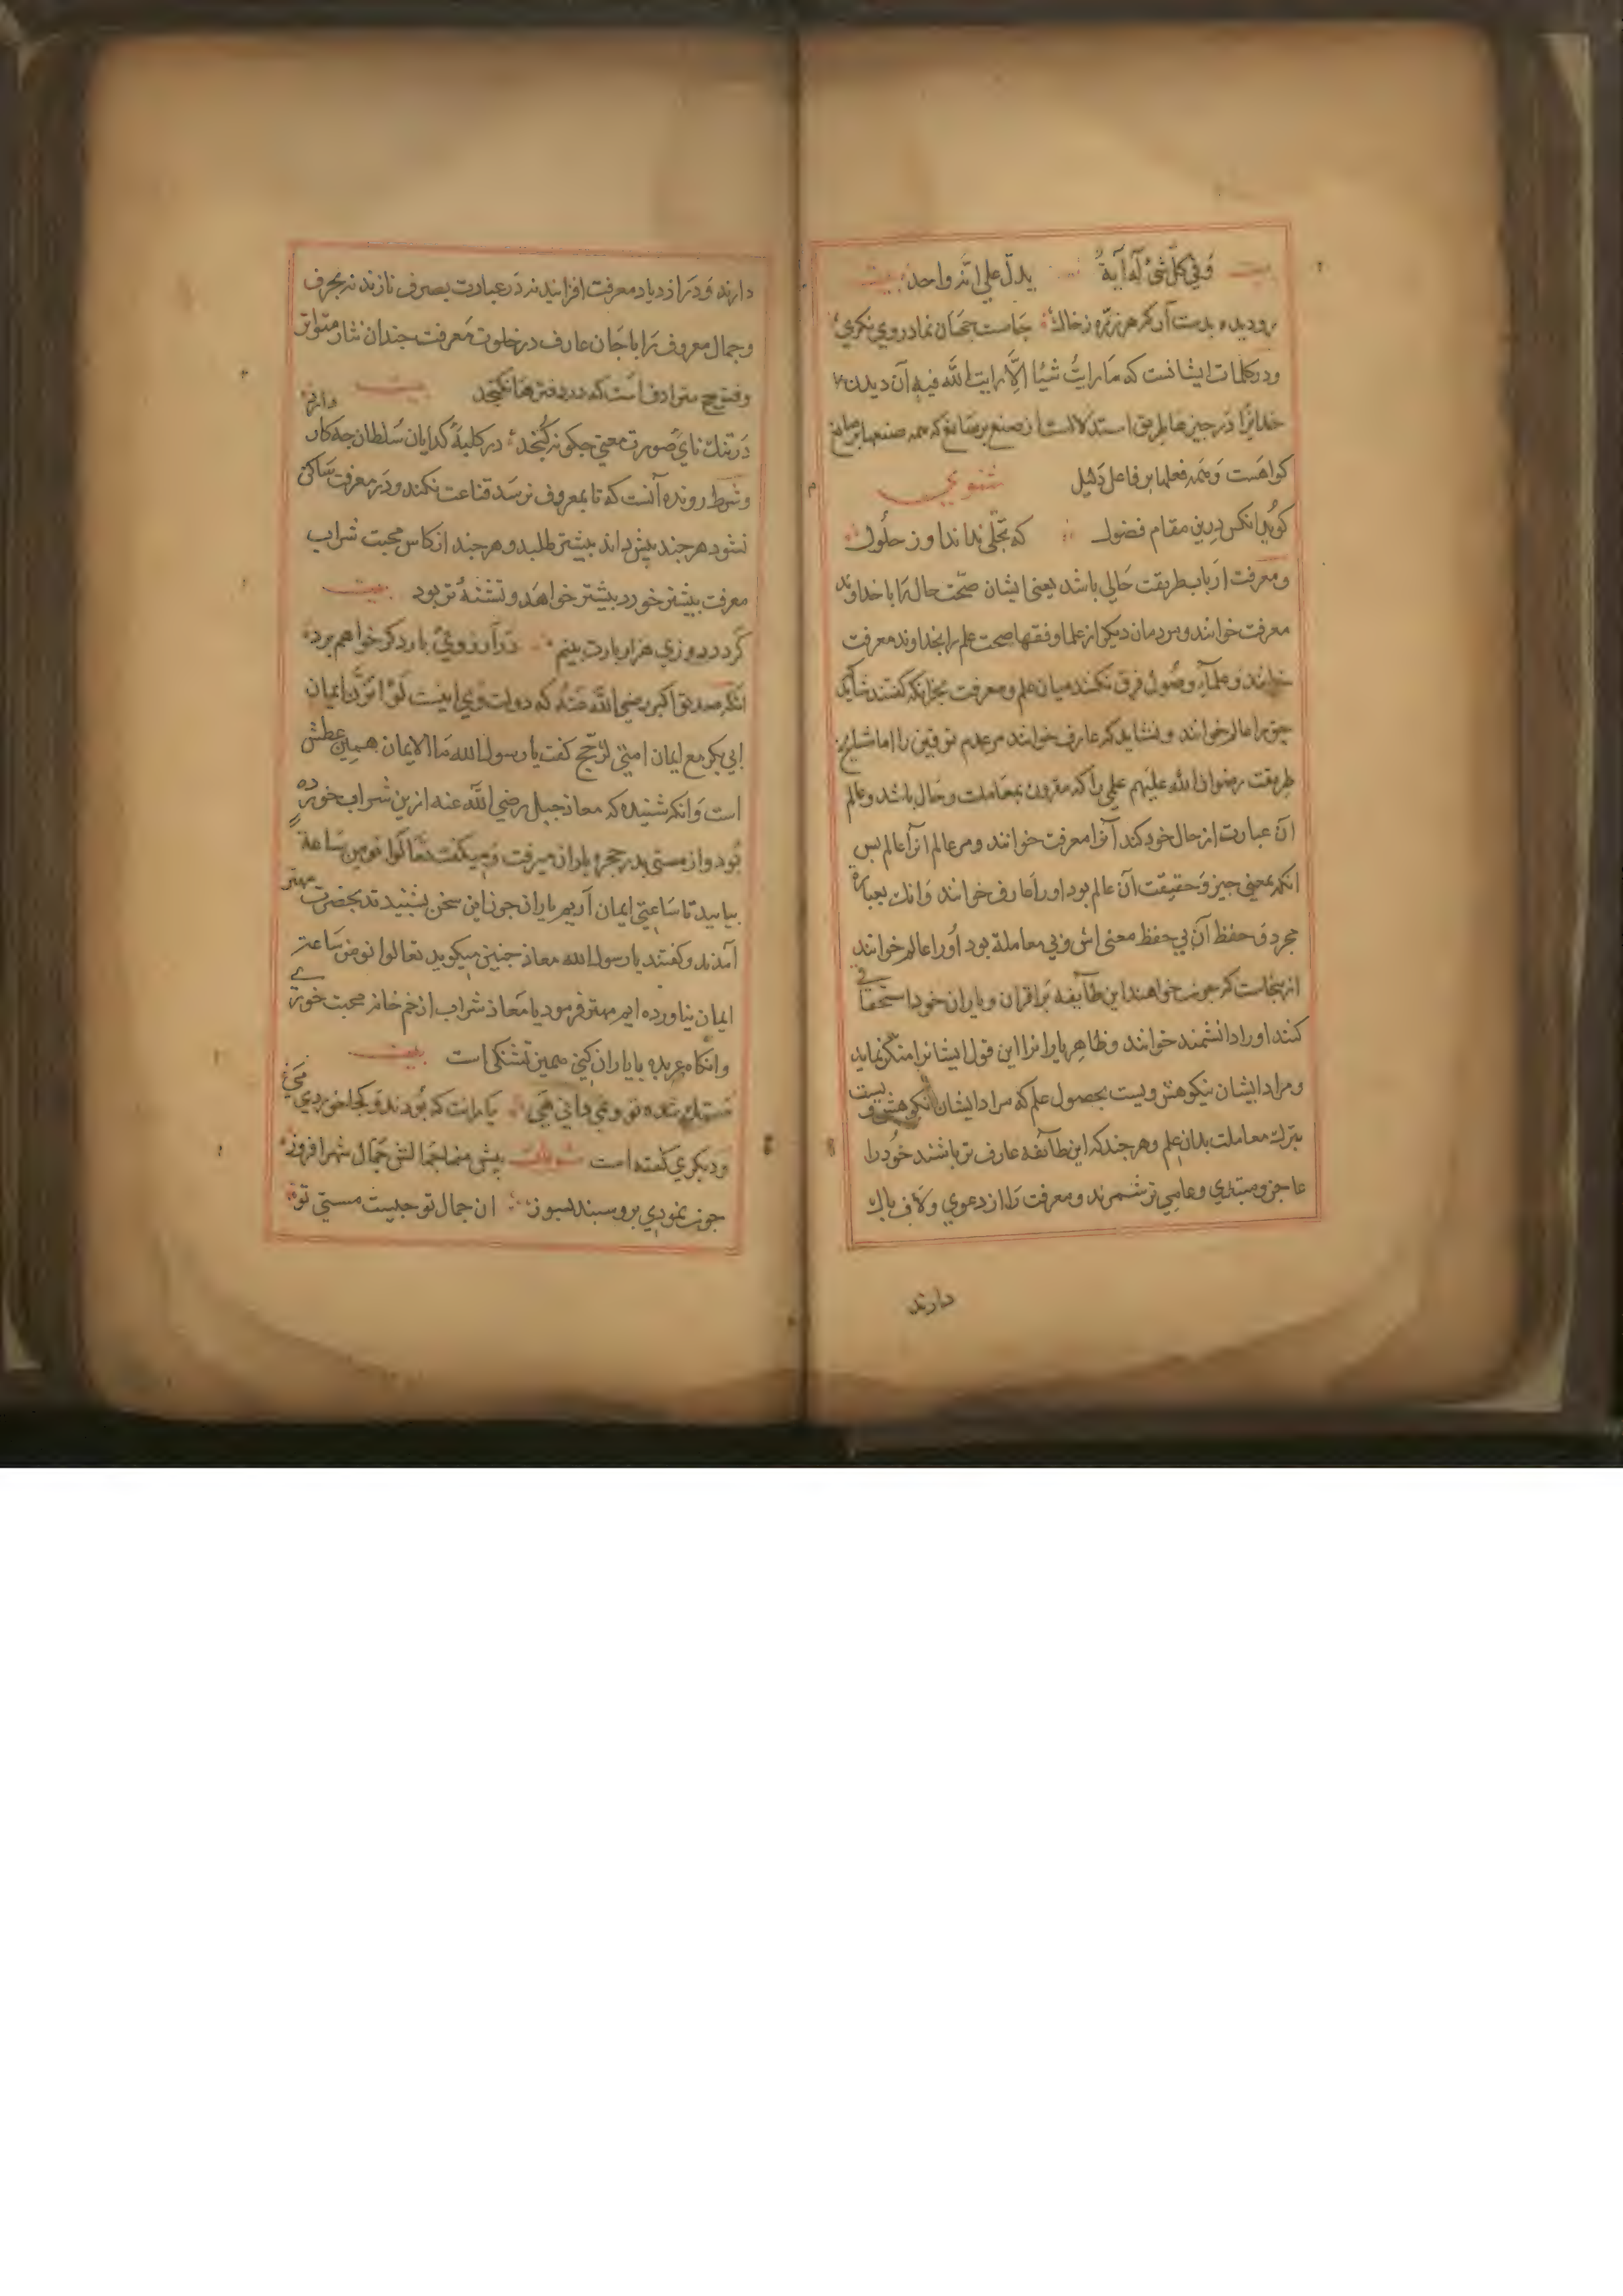 بیت وفي كلّ شئ له آية یدلّ علی انّه واحد بیت
رو دیده بدست آر که هر ذرّه ز خاك جامست جهان نما در وی نکری
ودر کلمات ایشانست که ما رایتُ شیئا الّا رایت الله فیه آن دیدن
خدایرا در چیزها بطریق استدلالست از صنع بر صانع که همه صنعها بر صانع
کواهست وهمه فعلها بر فاعل دلیل مثنوی
کوید انکس درین مقام فضول که تجلّی نداند او ز حلول
ومعرفت ارباب طریقت حالی باشد یعنی ایشان صحّت حال را با خداوند
معرفت خوانند ومردمان دیکر از علما وفقها صحت علم را بخداوند معرفت
خوانند وعلماء وصول فرق نکنند میان علم ومعرفت بجز انکه کفتند شاید که
حق را عالم خوانند ونشاید که عارف خوانند مر عدم توقیف را اما مشایخ
طریقت رضوان الله علیهم علمی را که مقرون بمعاملت وحال باشد وعالم
آن عبارت از حال خود کند آنرا معرفت خوانند ومر عالم انرا عالم پس
انکه بمعنی چیز وحقیقت آن عالم بود اورا عارف خوانند وانك بعبارة
مجرد وحفظ آن بی حفظ معنی اش وبی معامله بود اورا عالم خوانند
از ینجاست که چون خواهند این طایفه بر اقران ویاران خود استخفافی
کنند اورا دانشمند خوانند وظاهر یارانرا این قول ایشانرا منکر نماید
ومراد ایشان نیکوهش ویست بحصول علم که مراد ایشان نکوهش ویست
بترك معاملت بدان علم وهر چند که این طائفه عارف تر باشند خود را
عاجز ومبتدی وعامی تر شمرند ومعرفت را از دعوی ولاف پاك
دارند
دارند ودر ازدیاد معرفت افزایند نه در عبارت بصرف نازند نه بحرف
وجمال معروف را با جان عارف در خلوت معرفت چندان نثار متواتر
وفتوح مترادف است که در دفترها نکنجد بیت
در تنك نای صورت معنی چکونه کنجد در کلبهٔ کدایان سلطان چه کار دارد
وشرط رونده آنست که تا بمعروف نرسد قناعت نکند ودر معرفت ساکن
نشود هر چند بیش داند بیشتر طلبد وهر چند از کاس محبت شراب
معرفت بیشتر خورد بیشتر خواهد وتشنه تر بود بیت
کر در روزی هزار بارت بینم در آرزوی بار دکر خواهم بود
انکه صدیق اکبر رضی الله عنه که دولت وی اینست لو اتزن ایمان
ابی بکر مع ایمان امتی لرجح کفت یا رسول الله ما الایمان همین عطش
است وانکه شنیده که معاذ جبل رضی الله عنه ازین شراب خورده
بود واز مستی بدر حجره یاران میرفت ومیکفت تعالوا نومن ساعة
بیایید تا ساعتی ایمان آریم یاران چون این سخن بشنیدند بحضرت مهتر
آمدند وکفتند یا رسول الله معاذ چنین میکوید تعالوا نومن ساعة
ایمان نیاورده ایم مهتر فرمود یا معاذ شراب از خم خانه محبت خوری
وانکاه عربده با یاران کنی همین تشنکی است بیت
مستك شده تو ونمی دانی هی یارانت که بودند وکجا خوردی می
ودیکری کفته است بیت بیش منما جمال شهر افروز
چون نمودی برو سپند بسوز ان جمال تو چیست مستی تو